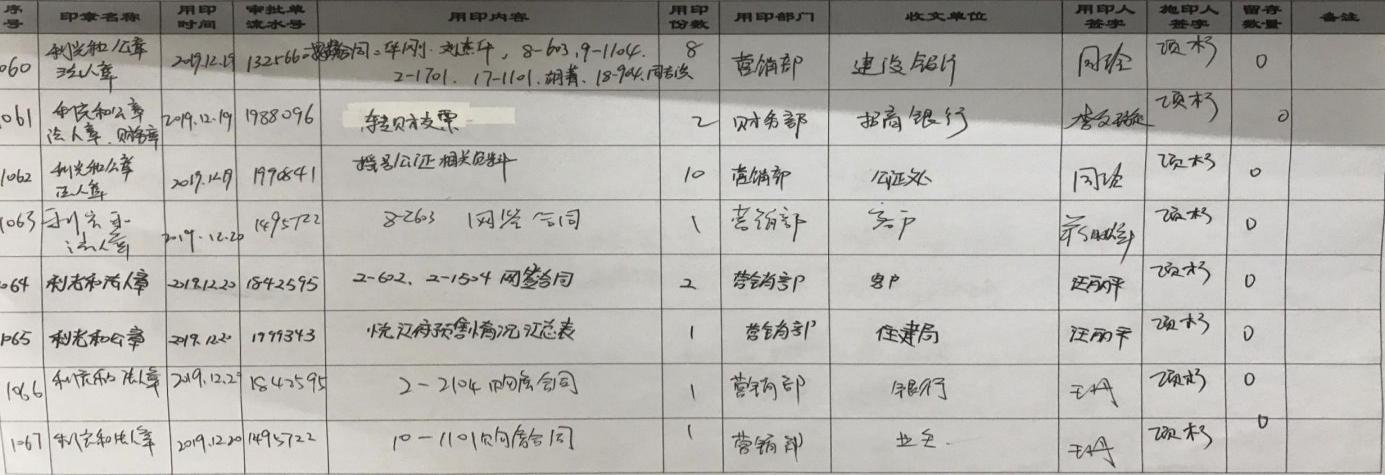 序号 印章名称 用印时间 审批单流水号 用印内容 用印份数 用印部门 收文单位 用印人签字 施印人签字 留存数量 备注
060 利光和公章 法人章 2019.12.19 132566 8-603, 9-1104. 8 营销部 建设银行 0
2-1701. 17-1101. 18-904.
1061 公章 法人章 财务章 2019.12.19 1988096 支票 2 财务部 招商银行 0
1062 利光和公章 法人章 2019.12.19 1990841 摇号公证相关资料 10 营销部 公证处 0
1063 法人章 2019.12.20 1495722 8-2603 网签合同 1 营销部 客户 0
064 利光和法人章 2019.12.20 1842595 2-602、2-1504 网签合同 2 营销部 客户 汪丽平 0
1065 利光和公章 2019.12.20 1999343 悦江府预售情况汇总表 1 营销部 住建局 汪丽平 0
1066 利光和法人章 2019.12.20 1842595 2-2104 购房合同 1 营销部 银行 王丹 0
1067 利光和法人章 2019.12.20 1495722 10-1101 购房合同 1 营销部 业主 王丹 0